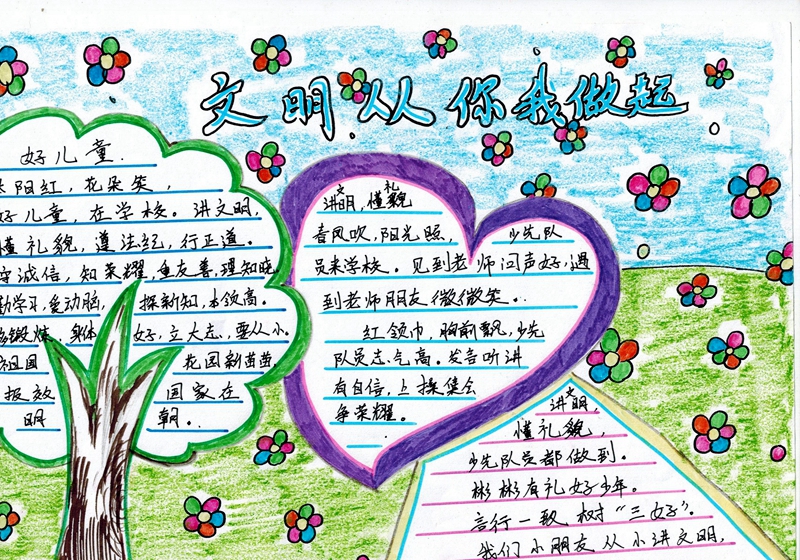 文明从你我做起
好儿童.
阳红,花朵笑,
好儿童,在学校。讲文明,
懂礼貌,遵法纪,行正道。
守诚信,知荣耀,重友善,理知晓
勤学习,爱动脑,探新知,本领高。
锻炼,身体好,立大志,要从小。
祖国花园新苗苗,
报效国家在
明朝。
讲文明,懂礼貌
春风吹,阳光照,少先队
员来学校。见到老师问声好,遇
到老师朋友微微笑。
红领巾,胸前飘,少先
队员志气高。发言听讲
有自信,上操集会
争荣耀。
讲文明,
懂礼貌,
少先队员都做到。
彬彬有礼好少年。
言行一致树“三好”。
我们小朋友从小讲文明,